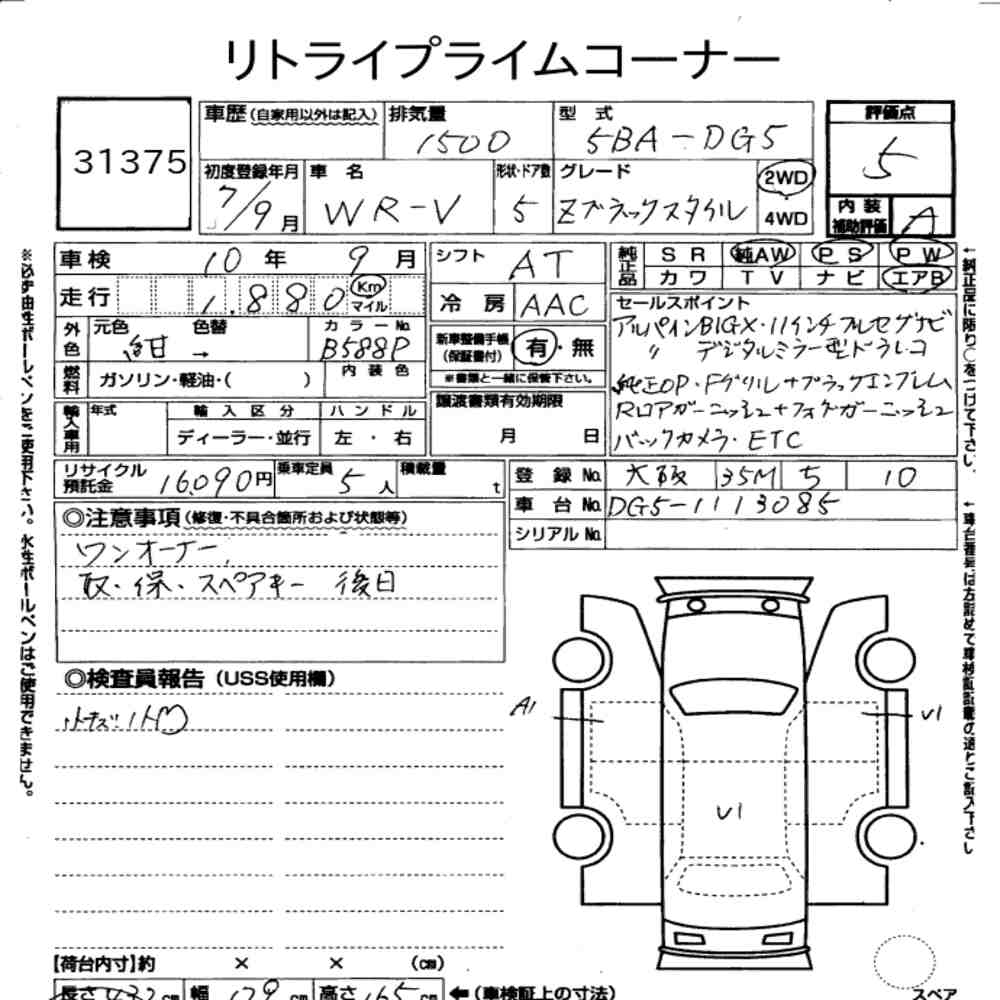 リトライプライムコーナー
31375
車歴(自家用以外は記入) 排気量 1500 型式 5BA-DG5
初度登録年月 7/9月 車名 WR-V 形状・ドア数 5 グレード Zブラックスタイル 2WD 4WD
評価点 5
内装補助評価 A
車検 10年 9月
走行 1.880 Km マイル
外色 元色 紺 色替 → カラーNo. B588P
燃料 ガソリン・軽油・( ) 内装色
輸入車用 年式 輸入区分 ハンドル
ディーラー・並行 左・右
シフト AT
冷房 AAC
新車整備手帳(保証書付) 有・無
※書類と一緒に保管下さい。
譲渡書類有効期限
月 日
純正品 SR 純AW PS PW
カワ TV ナビ エアB
セールスポイント
アルパインBIGX・11インチフルセグナビ
〃 デジタルミラー型ドラレコ
純正OP・Fグリル+ブラックエンブレム
Rロアガーニッシュ+フォグガーニッシュ
バックカメラ・ETC
リサイクル預託金 16,090円 乗車定員 5人 積載量 t
登録No. 大阪 35M ち 10
車台No. DG5-1113085
シリアルNo.
◎注意事項(修復・不具合箇所および状態等)
ワンオーナー、
取・保・スペアキー 後日
◎検査員報告(USS使用欄)
A1
U1
U1
【荷台内寸】約 × × (cm)
長さ cm 幅 179 cm 高さ 165 cm ←(車検証上の寸法)
スペア
※必ず油性ボールペンをご使用下さい。水性ボールペンはご使用できません。
←純正品に限り○をつけて下さい。
←車台番号は左詰めで車検証記載の通りご記入下さい